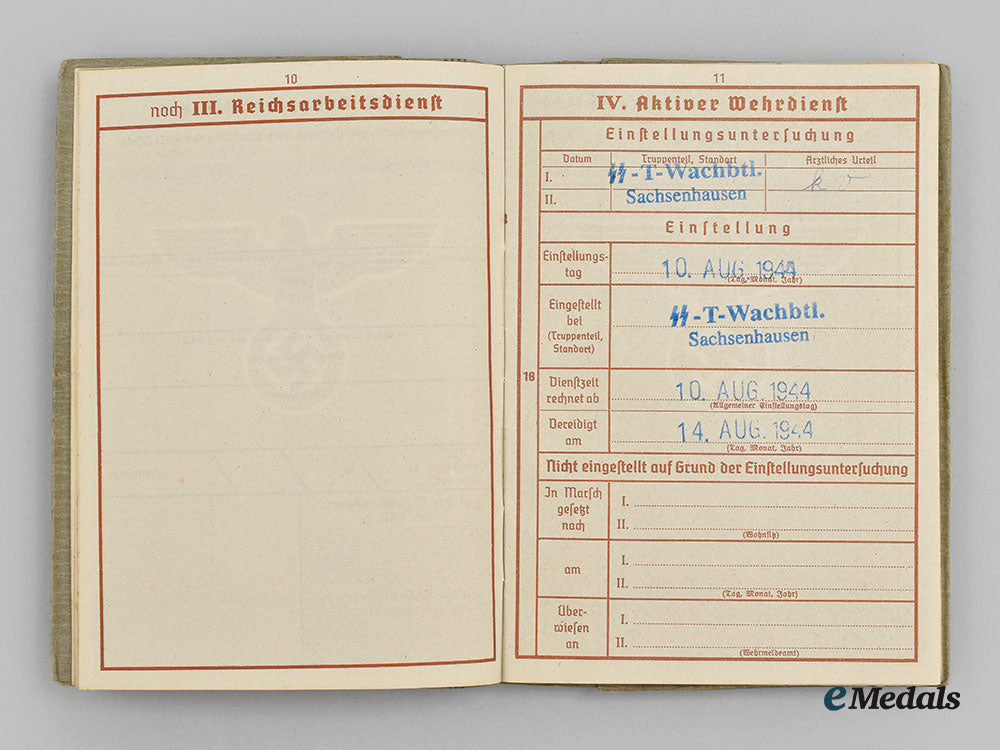 10
noch III. Reichsarbeitsdienst
11
IV. Aktiver Wehrdienst
Einstellungsuntersuchung
Datum Truppenteil, Standort Ärztliches Urteil
I.
II.
ᛋᛋ-T-Wachbtl.
Sachsenhausen
k v
Einstellung
Einstellungs-
tag
10. AUG. 1944
(Tag, Monat, Jahr)
Eingestellt
bei
(Truppenteil,
Standort)
ᛋᛋ-T-Wachbtl.
Sachsenhausen
18
Dienstzeit
rechnet ab
10. AUG. 1944
(Allgemeiner Einstellungstag)
Vereidigt
am
14. AUG. 1944
(Tag, Monat, Jahr)
Nicht eingestellt auf Grund der Einstellungsuntersuchung
In Marsch
gesetzt
nach
I.
II.
(Wohnsitz)
am
I.
II.
(Tag, Monat, Jahr)
Über-
wiesen
an
I.
II.
(Wehrmeldeamt)
eMedals